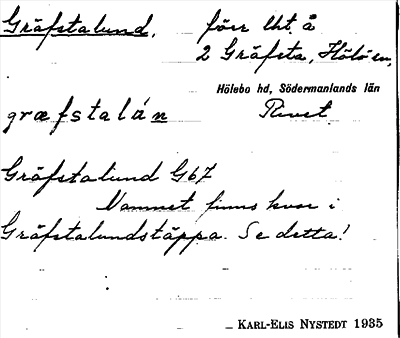 Gräfstalund, förr lht å
2 Gräfsta, Hölö sn,
Hölebo hd, Södermanlands län
græfstalán Rivet
Gräfstalund G67
Namnet finns kvar i
Gräfstalundstäppa. Se detta!
KARL-ELIS NYSTEDT 1935